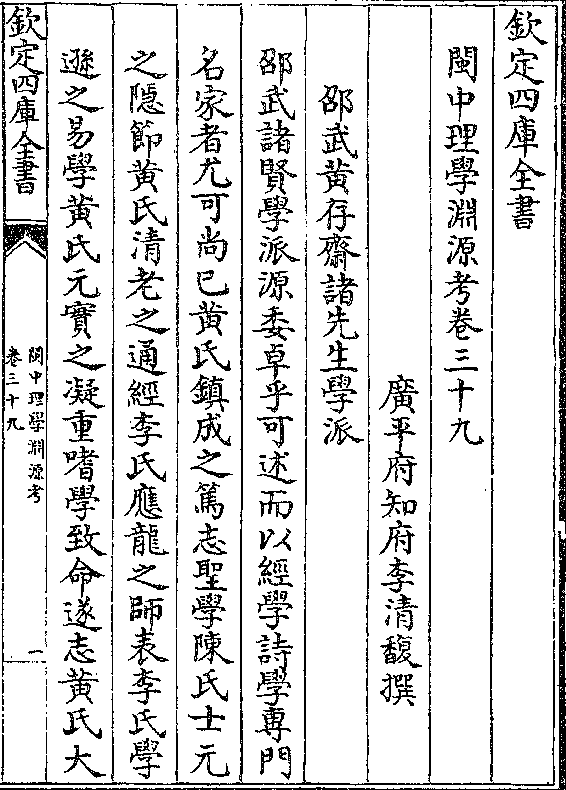 欽定四庫全書
閩中理學淵源考卷三十九
廣平府知府李清馥撰
邵武黄存齋諸先生學派
邵武諸賢學派源委卓乎可述而以經學詩學専門
名家者尤可尚已黄氏鎮成之篤志聖學陳氏士元
之隠節黄氏清老之通經李氏應龍之師表李氏學
遜之易學黄氏元實之凝重嗜學致命遂志黄氏大
欽定四庫全書
閩中理學淵源考
卷三十九
一